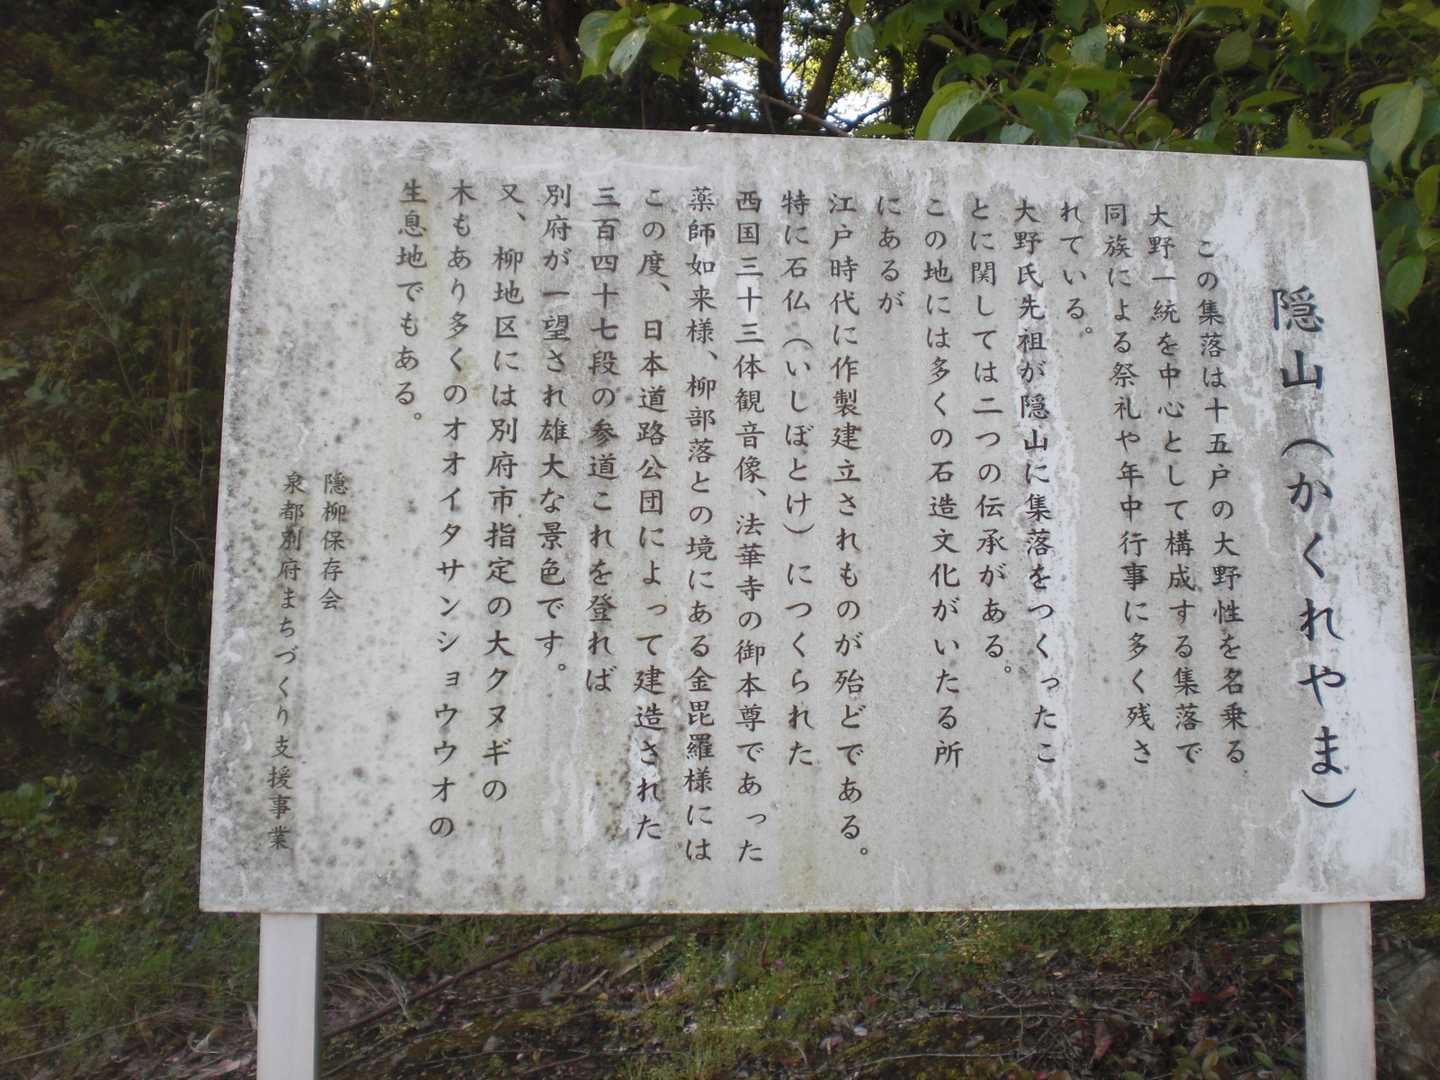 隠山（かくれやま）
この集落は十五戸の大野性を名乗る
大野一統を中心として構成する集落で
同族による祭礼や年中行事に多く残さ
れている。
大野氏先祖が隠山に集落をつくったこ
とに関しては二つの伝承がある。
この地には多くの石造文化がいたる所
にあるが
江戸時代に作製建立されものが殆どである。
特に石仏（いしぼとけ）につくられた
西国三十三体観音像、法華寺の御本尊であった
薬師如来様、柳部落との境にある金毘羅様には
この度、日本道路公団によって建造された
三百四十七段の参道これを登れば
別府が一望され雄大な景色です。
又、柳地区には別府市指定の大クヌギの
木もあり多くのオオイタサンショウウオの
生息地でもある。
隠柳保存会
泉都別府まちづくり支援事業